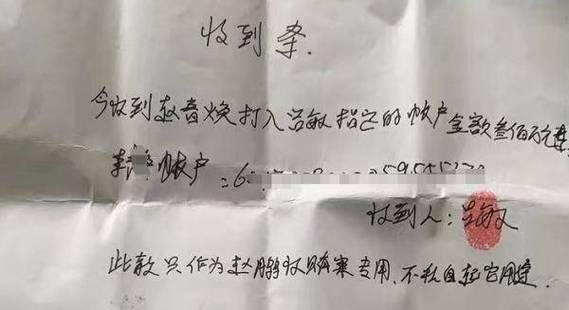 收到条.
今收到赵音焕打入吕敏指定的帐户金额叁佰万元整
帐户:6
收到人:吕敏
此款只作为赵鹏 案专用.不私自 它用途.